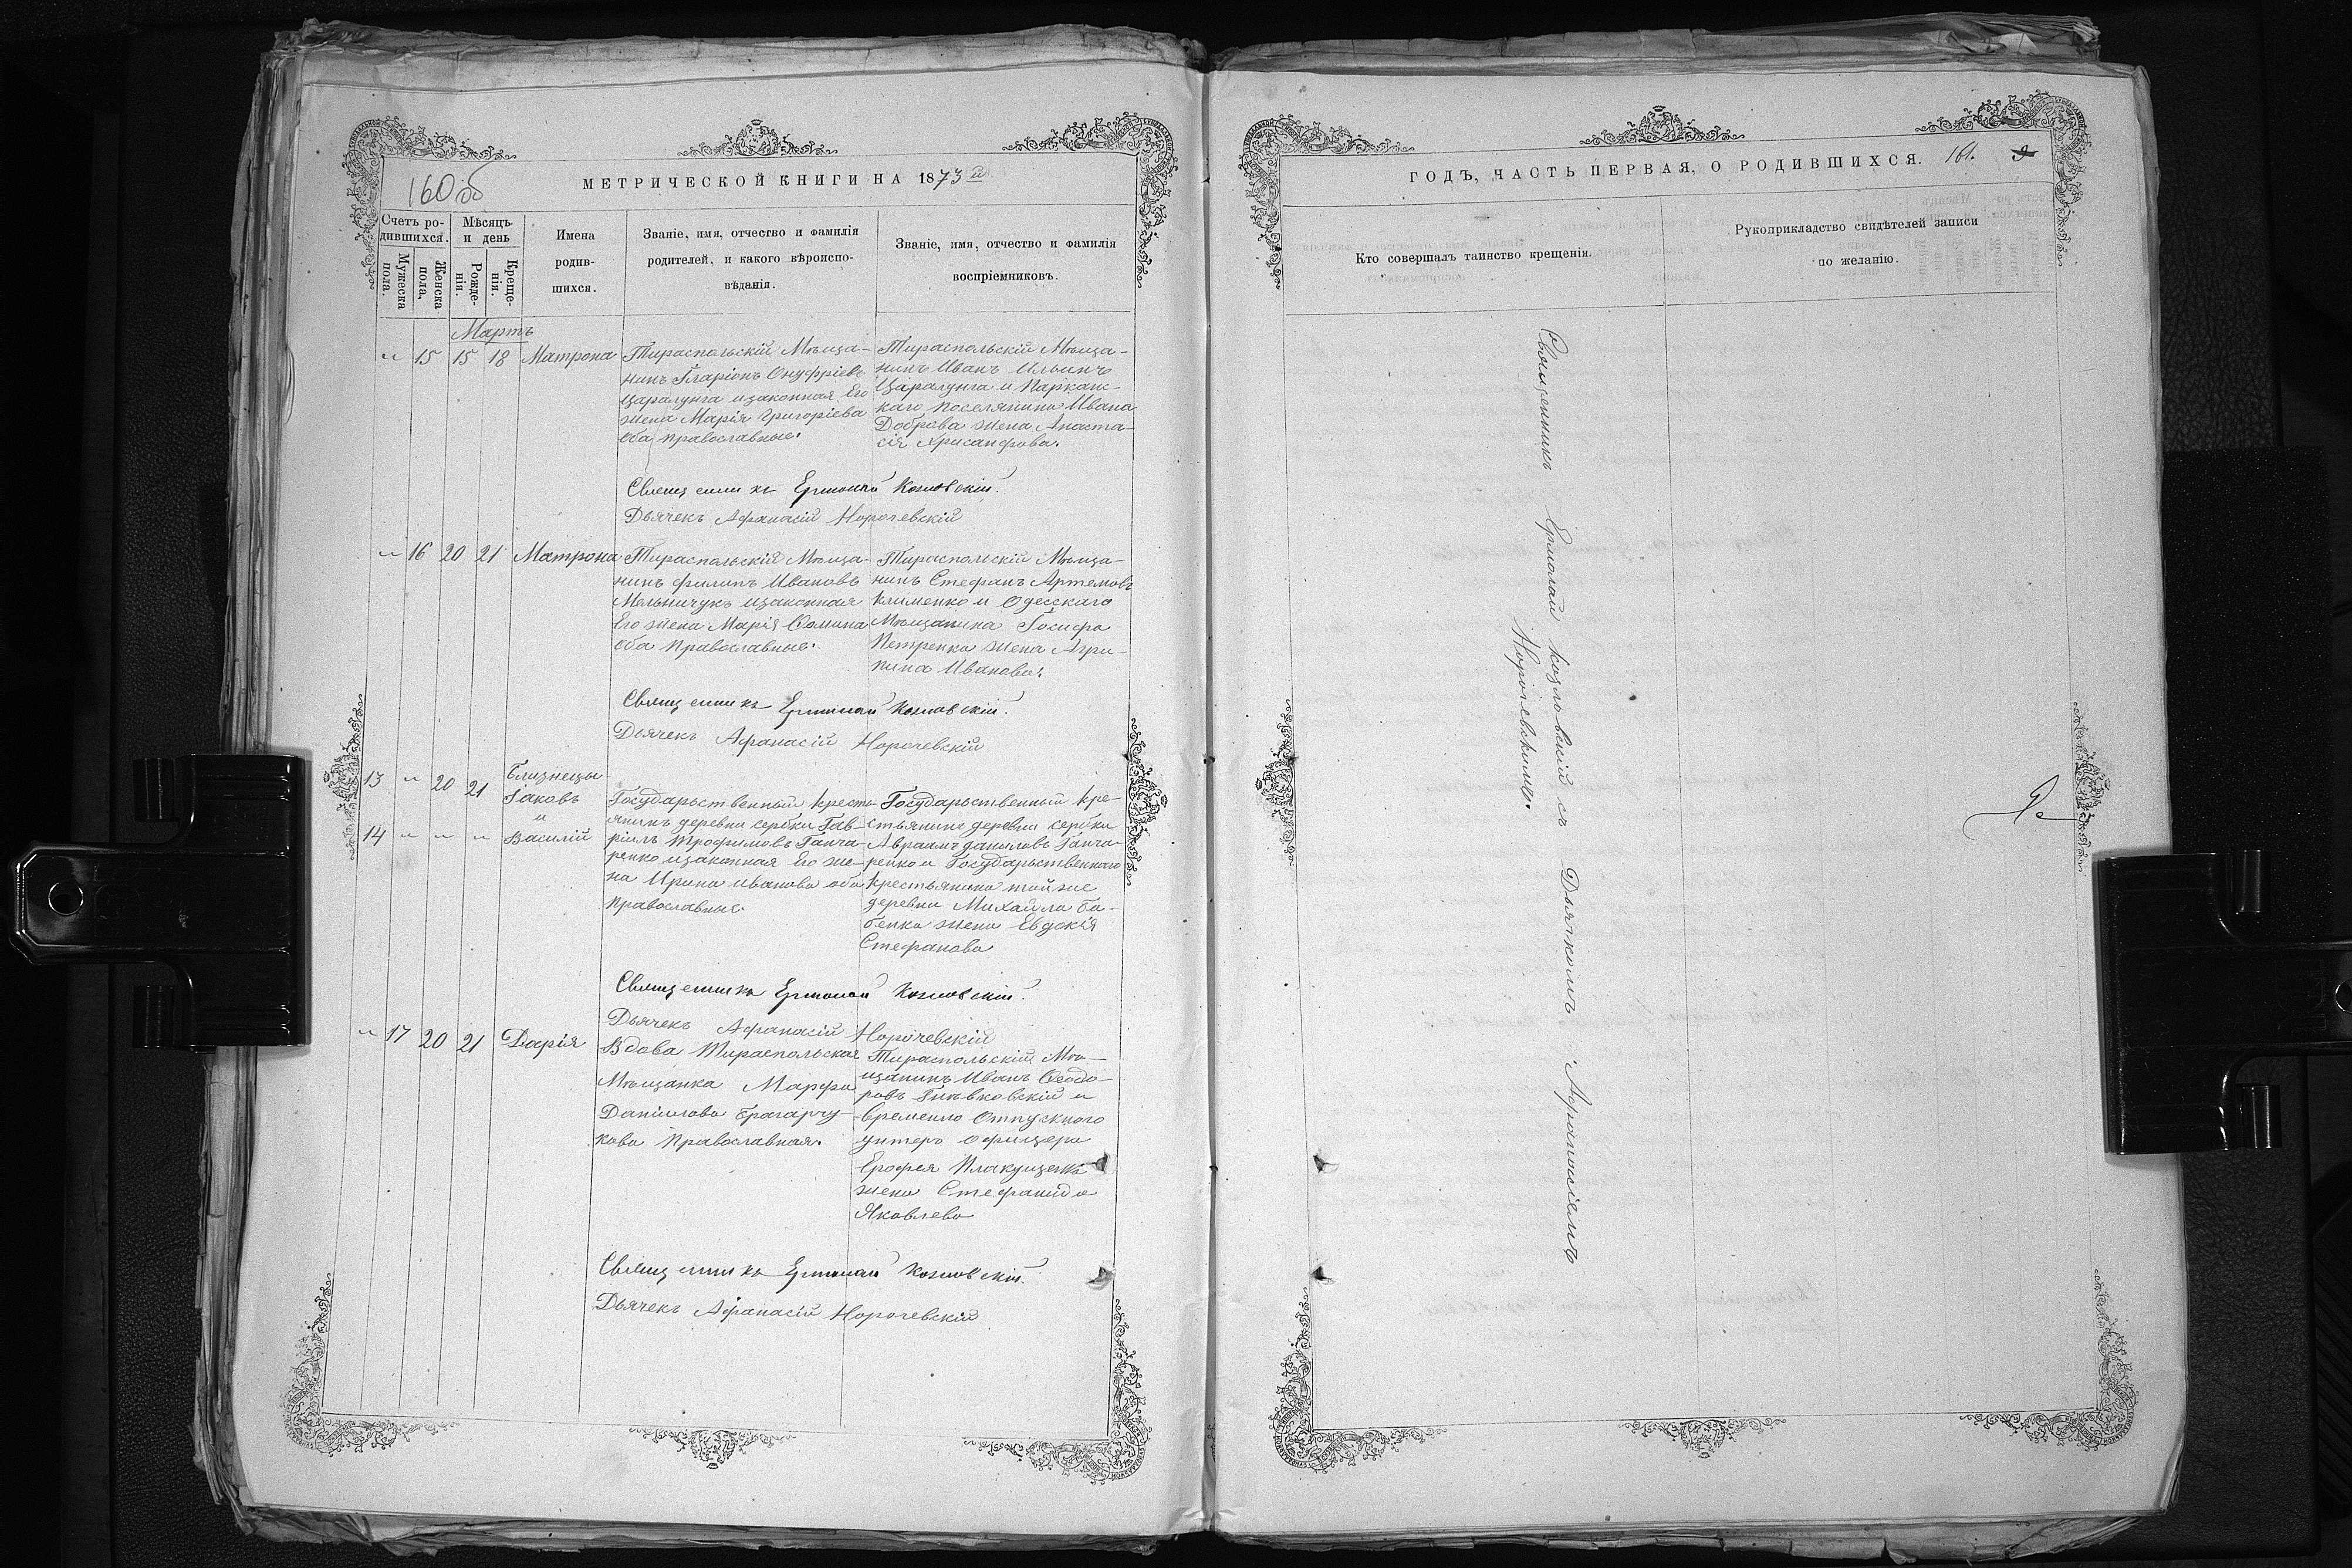 160 об
МЕТРИЧЕСКОЙ КНИГИ НА 1873й
Счетъ ро-
дившихся.
Мѣсяцъ
и день
Мужеска
пола.
Женска
пола.
Рожде-
нія.
Креще-
нія.
Имена
родив-
шихся.
Званіе, имя, отчество и фамилія
родителей, и какого вѣроиспо-
вѣданія.
Званіе, имя, отчество и фамилія
воспріемниковъ.
Мартъ
" 15 15 18 Матрона
Тираспольскій Мѣща-
нинъ Иларіонъ Онуфріевъ
Царалунга изаконная Его
жена Марія Григоріева
оба православные.
Тираспольскій Мѣща-
нинъ Иванъ Ильинъ
Царалунга и Паркан-
каго поселянина Ивана
Доброва жена Анаста-
сія Хрисанфова.
Священникъ Ермолай Козловскій.
Дьячекъ Афанасій Норочевскій
" 16 20 21 Матрона
Тираспольскій Мѣща-
нинъ Филипъ Ивановъ
Мельничукъ изаконная
Его жена Марія Фомина
оба Православные.
Тираспольскій Мѣща-
нинъ Стефанъ Артемовъ
Клименко и Одесскаго
Мѣщанина Іосифа
Петренка жена Агри-
пина Иванова.
Священникъ Ермолай Козловскій.
Дьячекъ Афанасій Норочевскій
13 " 20 21 Близнецы
Іаковъ
и
14 " " " Василій
Государьственный кресть-
янинъ деревни сербки Гав-
ріилъ Трофимовъ Ганча-
ренко изаконная Его же-
на Ирина иванова оба
Православные.
Государьственный кре-
стьянинъ деревни сербки
Авраамъ даниловъ Ганча-
ренко и Государьственнаго
крестьянина тойже
деревни Михайла Ба-
бенка жена Евдокія
Стефанова
Священникъ Ермолай Козловскій.
Дьячекъ Афанасій Норочевскій
" 17 20 21 Дарія
Вдова Тираспольская
Мѣщанка Марфа
Даниилова Брагарчу-
кова Православная.
Тираспольскій Мѣ-
щанинъ Иванъ Феодо-
ровъ Гнѣвковскій и
временно Отпускного
унтеръ офицера
Ерофея Плакущенка
жена Стефанида
Яковлева
Священникъ Ермолай Козловскій.
Дьячекъ Афанасій Норочевскій
ГОДЪ, ЧАСТЬ ПЕРВАЯ, О РОДИВШИХСЯ. 161.
Кто совершалъ таинство крещенія.
Рукоприкладство свидѣтелей записи
по желанію.
Священникъ Ермолай козловскій съ Дьячкомъ Афанасіемъ
Норочевскимъ.